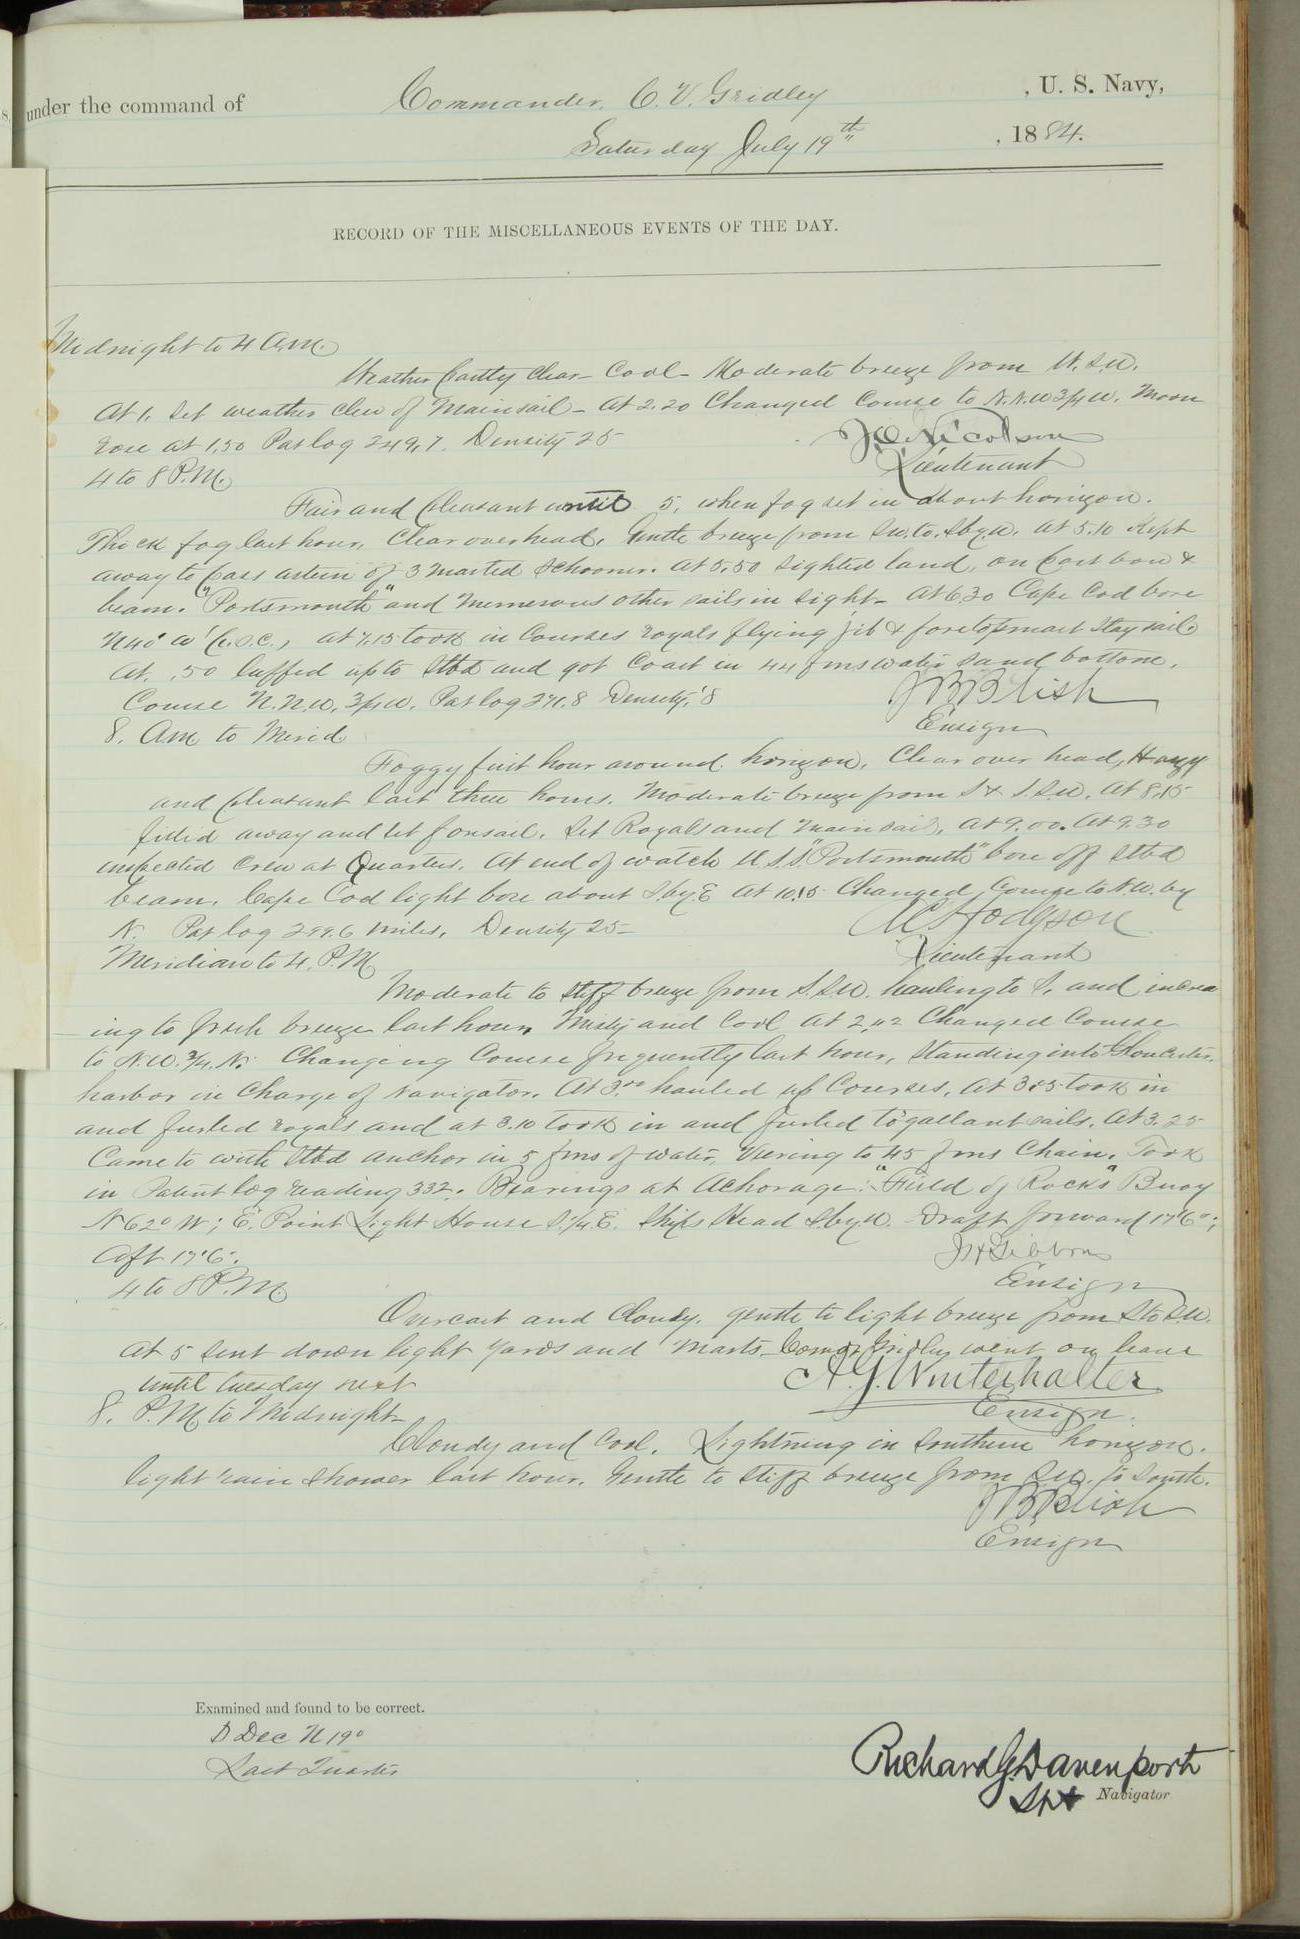 under the command of Commander, C. V. Gridley , U. S. Navy,
Saturday July 19th , 1884.
RECORD OF THE MISCELLANEOUS EVENTS OF THE DAY.
Midnight to 4 A.M.
Weather partly clear - Cool - Moderate breeze from W.S.W.
At 1. Set weather clew of Mainsail - At 2.20 Changed Course to N.N.W 3/4 W. Moon
rose at 1.50 Pat log 249.7. Density 25
J.O. Nicolson
Lieutenant
4 to 8 P.M.
Fair and pleasant until 5, when fog set in about horizon.
Thick fog last hour, Clear overhead. Gentle breeze from S.W. to S.by.W. At 5.10 Kept
away to pass astern of 3 Masted Schooner. At 5.50 Sighted land, on port bow &
beam. "Portsmouth" and numerous other sails in sight - At 6.30 Cape Cod bore
N 40° W (p.s.c.), at 7.15 took in Courses royals flying jib & foretopmast Stay sail.
At. .50 luffed up to Stbd and got cast in 44 fms water sand bottom.
Course N.N.W. 3/4 W. Pat log 271.8 Density
J B Blish
Ensign
8. Am to Merid
Foggy first hour around horizon, Clear over head, Hazy
and pleasant last three hours. Moderate breeze from S & S.S.W. At 8.15
filled away and let foresail. Set Royals and Mainsail, at 9.00. At 9.30
inspected Crew at Quarters. At end of watch U.S.S. "Portsmouth" bore off Stbd
beam, Cape Cod light bore about S.by.E At 10.15 Changed Course to N.W. by
N. Pat log 299.6 miles, Density 25 -
A C Hodgson
Lieutenant
Meridian to 4. P.M
Moderate to stiff breeze from S.S.W. hauling to S. and increas
ing to fresh breeze last hour. Misty and Cool At 2.42 Changed Course
to N.W. 3/4. N. Changing Course frequently last hour, Standing into Gloucester
harbor in Charge of Navigator. At 3.00 hauled up Courses. At 3.05 took in
and furled royals and at 3.10 took in and furled to'gallant sails. At 3.25
Came to with Stbd anchor in 5 fms of water, Veering to 45 fms Chain. Took
in Patent log reading 332. Bearings at Achorage: "Field of Rocks" Buoy
N 62° W; E. Point Light House S. 1/4. E. Ships Head S.by.W. Draft forward 17'6";
Aft 17'6".
J H Gibbons
Ensign
4 to 8 P.M.
Overcast and Cloudy. gentle to light breeze from S to S.W.
At 5 Sent down light Yards and Masts. Comdr Gridley went on leave
until Tuesday next
A. G. Winterhalter
Ensign.
8. P.M to Midnight -
Cloudy and Cool. Lightning in Southern horizon.
light rain shower last hour. Gentle to stiff breeze from S.W. to South.
J B Blish
Ensign
Examined and found to be correct.
D Dec N 19°
Last Quarter
Richard G. Davenport
Navigator